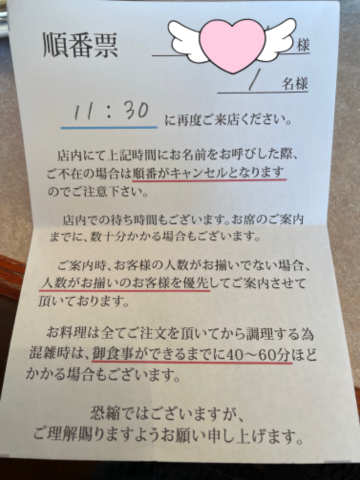 順番票 様
1 名様
11:30 に再度ご来店ください。
店内にて上記時間にお名前をお呼びした際、
ご不在の場合は順番がキャンセルとなります
のでご注意下さい。
店内での待ち時間もございます。お席のご案内
までに、数十分かかる場合もございます。
ご案内時、お客様の人数がお揃いでない場合、
人数がお揃いのお客様を優先してご案内させて
頂いております。
お料理は全てご注文を頂いてから調理する為
混雑時は、御食事ができるまでに40〜60分ほど
かかる場合もございます。
恐縮ではございますが、
ご理解賜りますようお願い申し上げます。